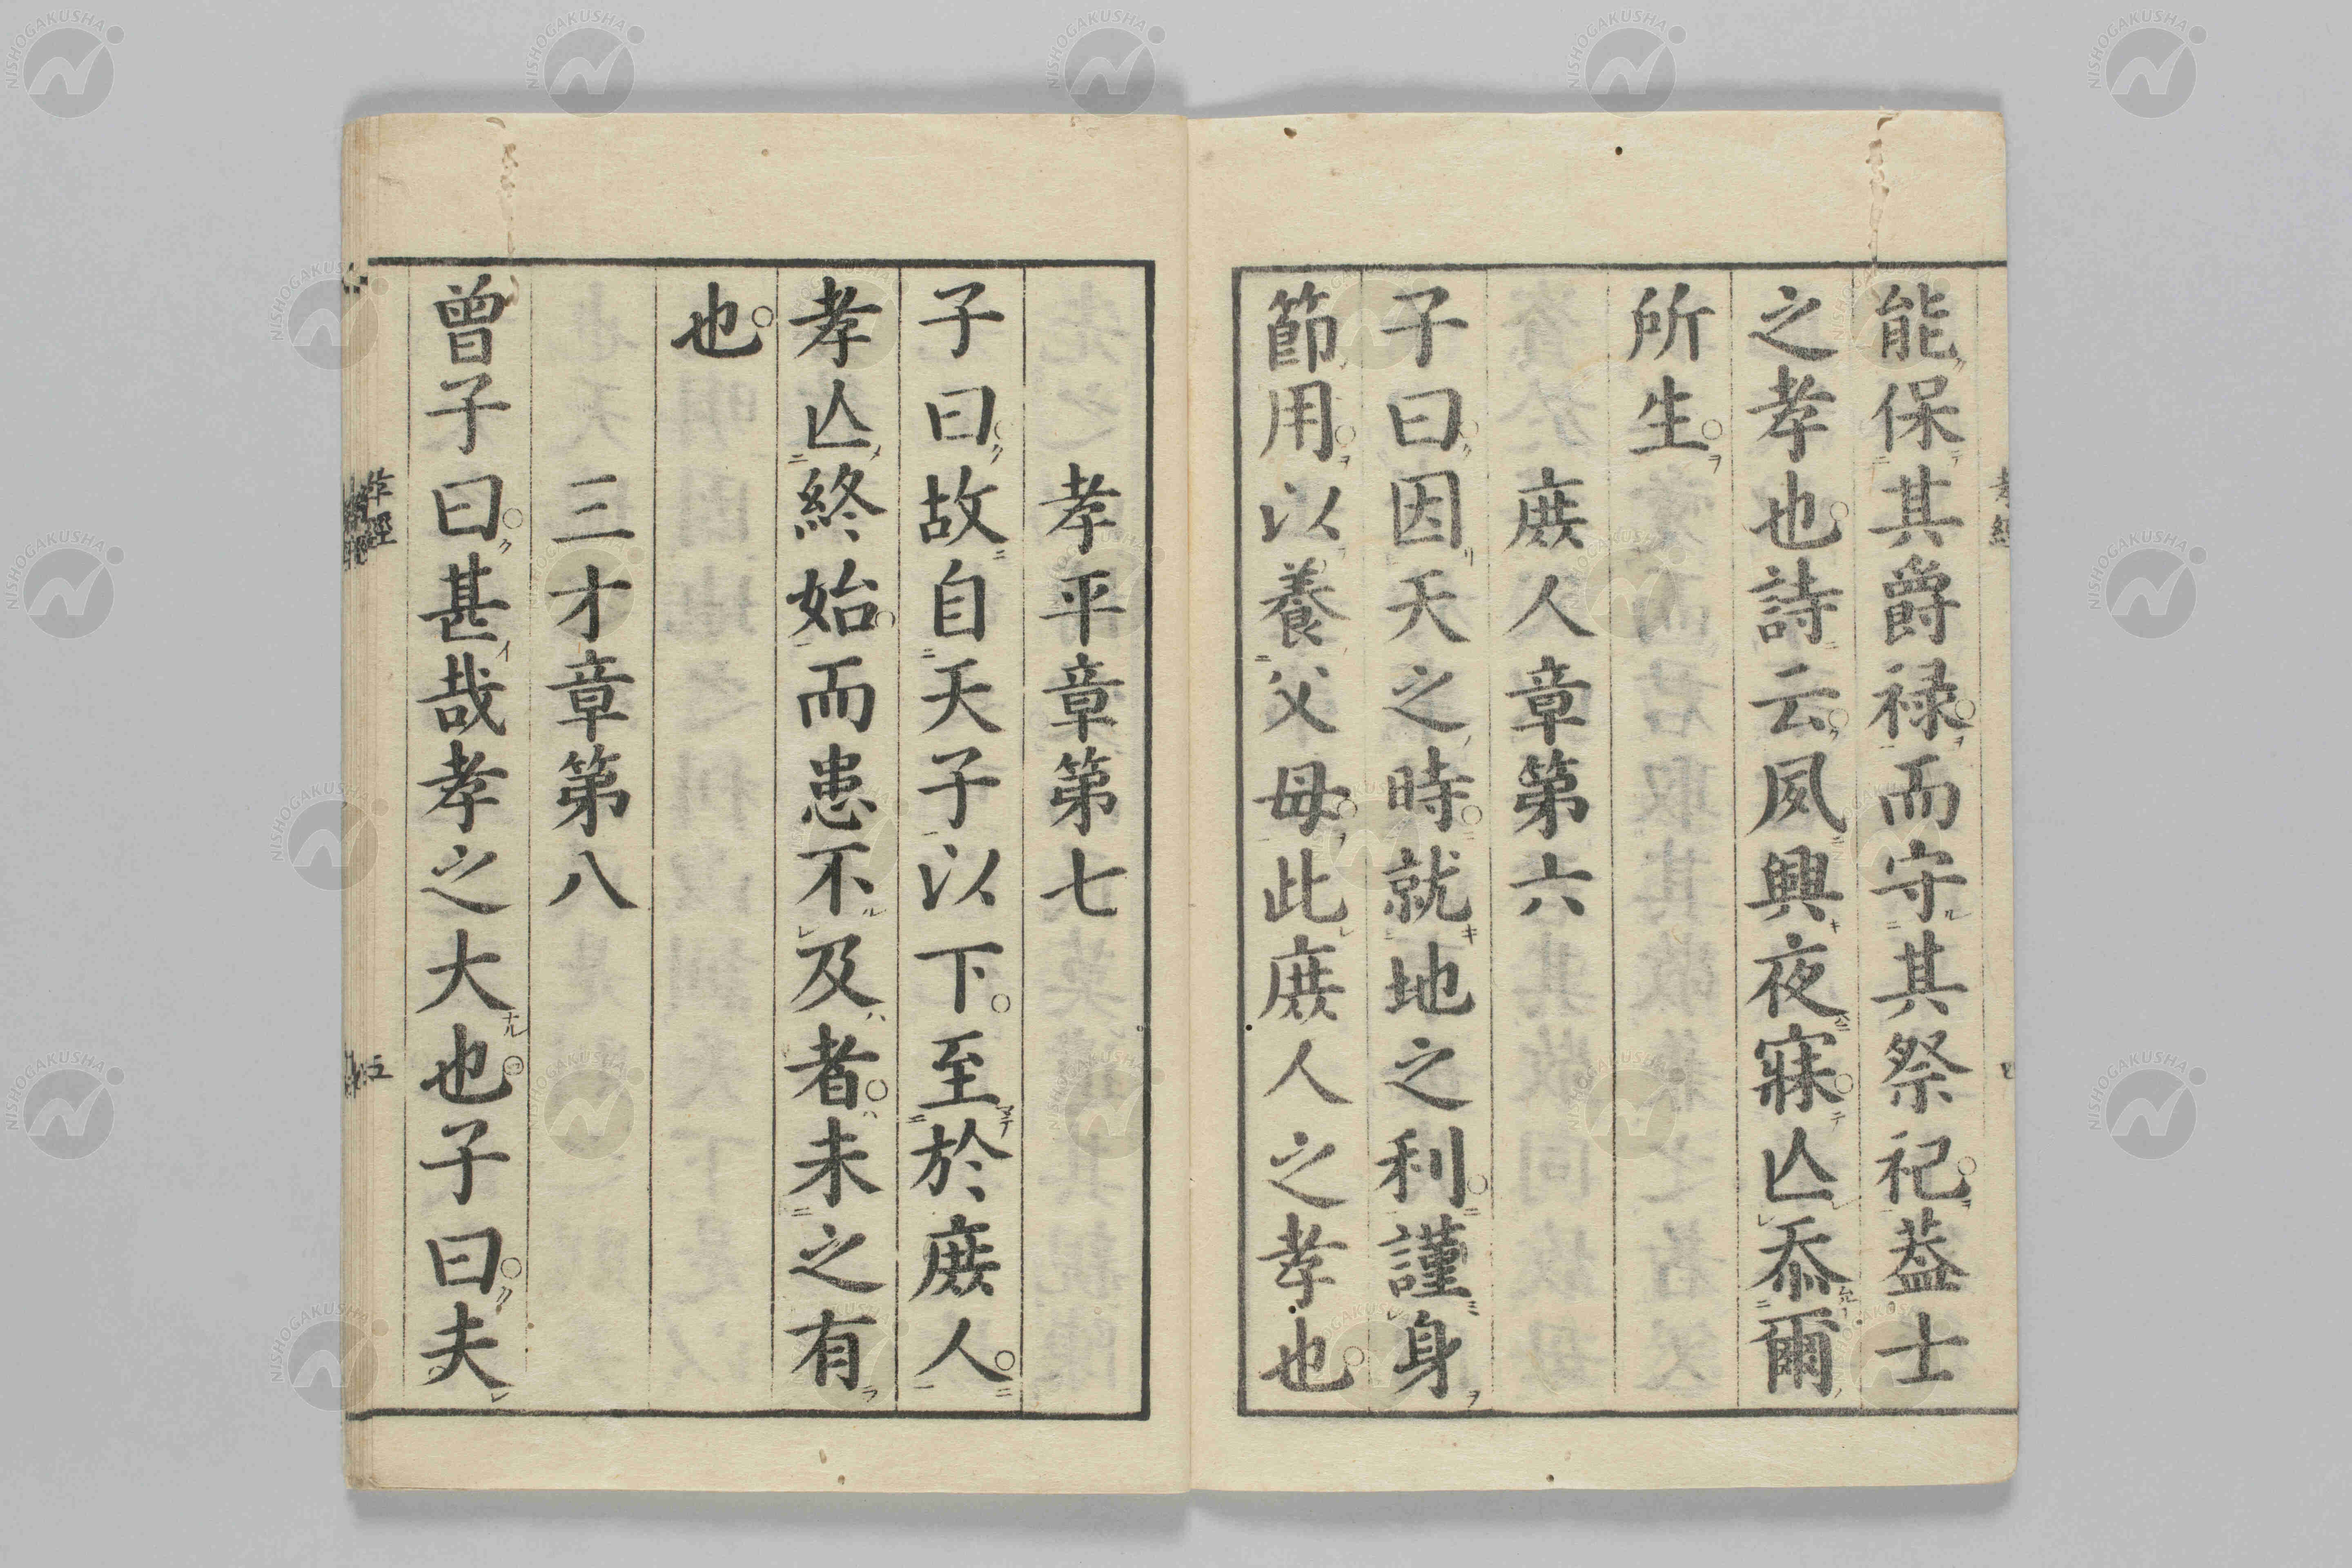 能保其爵禄而守其祭祀葢士
之孝也詩云夙興夜寐亾忝爾
所生
庻人章第六
子曰因天之時就地之利謹身
節用以養父母此庻人之孝也
孝平章第七
子曰故自天子以下至於庻人
孝亾終始而患不及者未之有
也
三才章第八
曾子曰甚哉孝之大也子曰夫